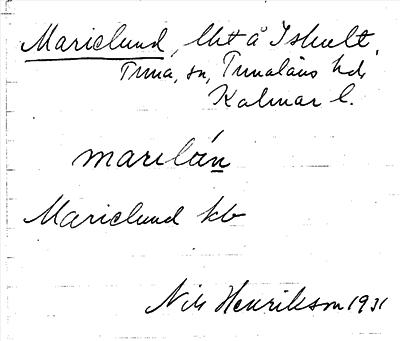 Mariclund, lht å Iskult,
Tuna, sn, Tunaläns hd,
Kalmar l.
marilún
Mariclund kb
Nils Henrikson 1931